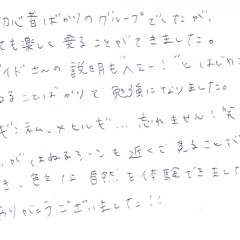 初心者ばかりのグループでしたが、
ても楽しく乗ることができました。
イドさんの説明も"へエー!"とはじめ
ることばかりで勉強になりました。
ギ:ネム、メヒルギ…忘れません!笑
がはねるシーンも近くで見ることで
き、色々な自然を体験できました
ありがとうございました!!